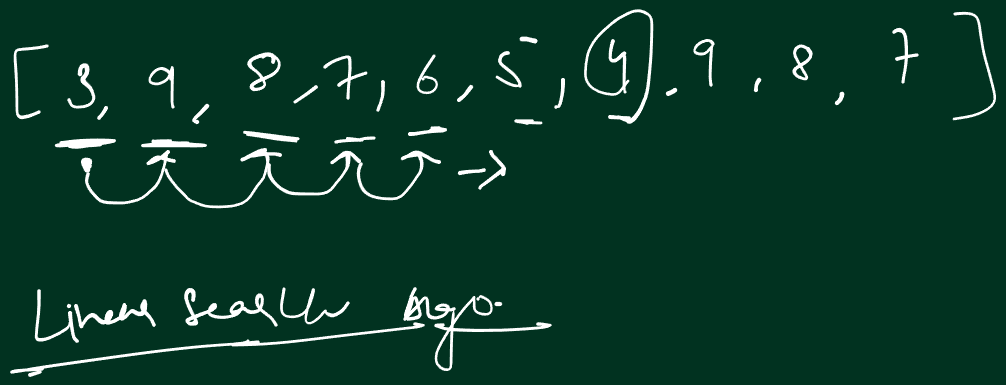 [ 3, 9, 8, 7, 6, 5, 4, 9, 8, 7 ]
Linear Search Algo.